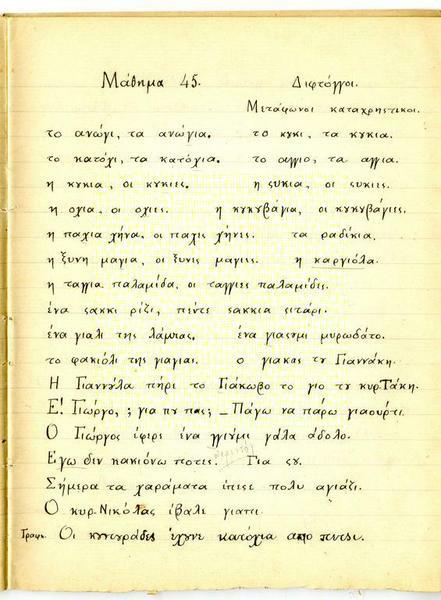 Μάθημα 45. Διφτόγγοι.
Μετάφωνοι καταχρηστικοι.
το ανώγι, τα ανώγια. το κυκι, τα κυκια.
το κατόχι, τα κατόχια. το αγγιο, τα αγγια.
η κυκια, οι κυκιες. η συκια, οι συκιες.
η οχια, οι οχιες. η κυκυβάγια, οι κυκυβάγιες.
η παχια χήνα, οι παχις χήνες. τα ραδίκια.
η ξυνη μαγια, οι ξυνις μαγιες. η καργιόλα.
η ταγγια παλαμίδα, οι ταγγιες παλαμίδες.
ένα σακκι ρίζι, πεντε σακκια σιτάρι.
ένα γιαλι της λάμπας. ένα γιασυμι μυρωδάτο.
το φακιόλι της γιαγιας. ο γιακας τυ Γιαννάκη.
Η Γιαννύλα πήρι το Γιάκωβο το γιο τυ κυρ-Τάκη.
Ε! Γιώργο, ; για πυ πας; – Πάγω να πάρω γιαούρτι.
Ο Γιώργος έφερε ένα γκιύμι γάλα άδολο.
Εγω δεν κακιόνω ποτες. Για συ.
Σήμερα τα χαράματα έπεσε πολυ αγιάζι.
Ο κυρ-Νικόλας έβαλε γιατι
Γραφ. Οι κυνυράδες έχυνε κατόχια απο πετσι.